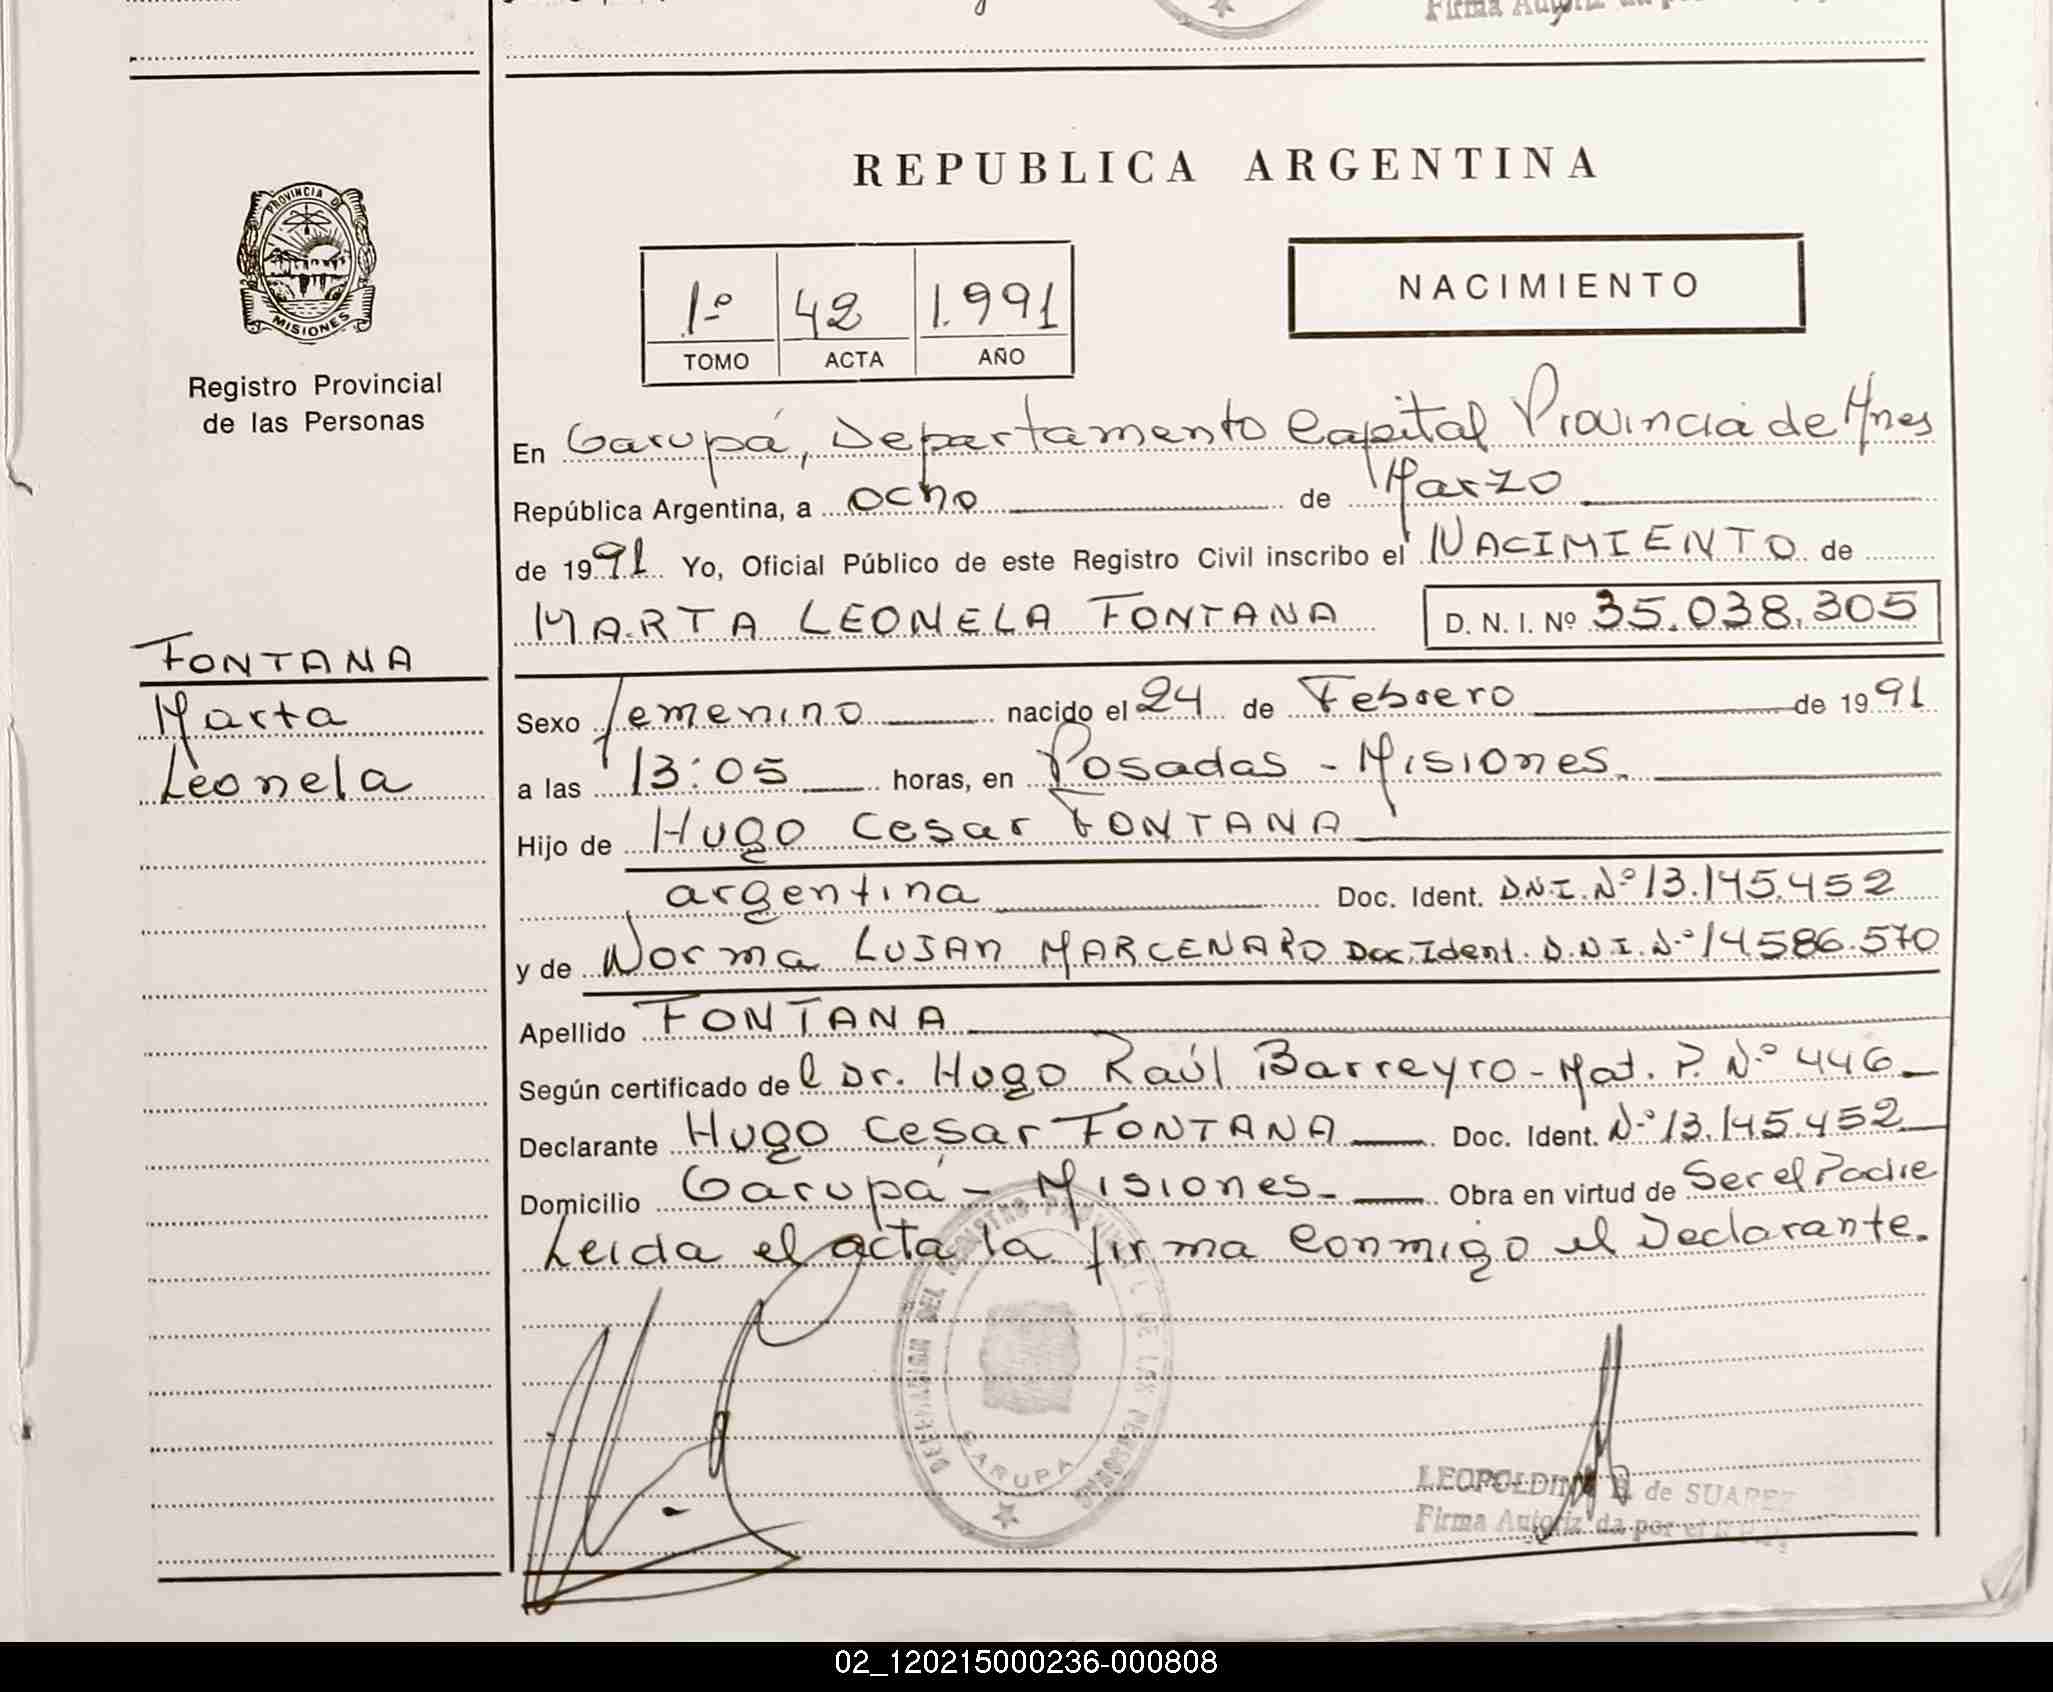 Firma Autoriz da por
REPUBLICA ARGENTINA
PROVINCIA DE
MISIONES
Registro Provincial
de las Personas
1º 42 1.991
TOMO ACTA AÑO
NACIMIENTO
En Garupá, Departamento Capital Provincia de Mnes
República Argentina, a ocho de Marzo
de 1991 Yo, Oficial Público de este Registro Civil inscribo el NACIMIENTO de
MARTA LEONELA FONTANA D. N. I. Nº 35.038.305
FONTANA
Marta
Leonela
Sexo femenino nacido el 24 de Febrero de 1991
a las 13:05 horas, en Posadas - Misiones.
Hijo de Hugo Cesar FONTANA
argentina Doc. Ident. D.N.I. Nº 13.145.452
y de Norma LUJAN MARCENARO Doc. Ident. D.N.I. Nº 14586.570
Apellido FONTANA
Según certificado de l Dr. Hugo Raúl Barreyro - Mat. P. Nº 446
Declarante Hugo Cesar FONTANA Doc. Ident. Nº 13.145.452
Domicilio Garupá - Misiones. Obra en virtud de Ser el Padre
Leida el acta la firma conmigo el Declarante.
DELEGACION DEL REGISTRO PROVINCIAL DE LAS PERSONAS
GARUPA
LEOPOLDINA B. de SUAREZ
Firma Autoriz da por el R.P.P.
02_120215000236-000808